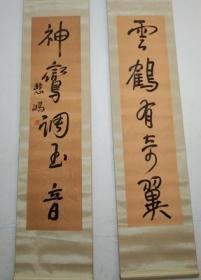 雲鶴有奇翼
神鸞調玉音
悲鴻